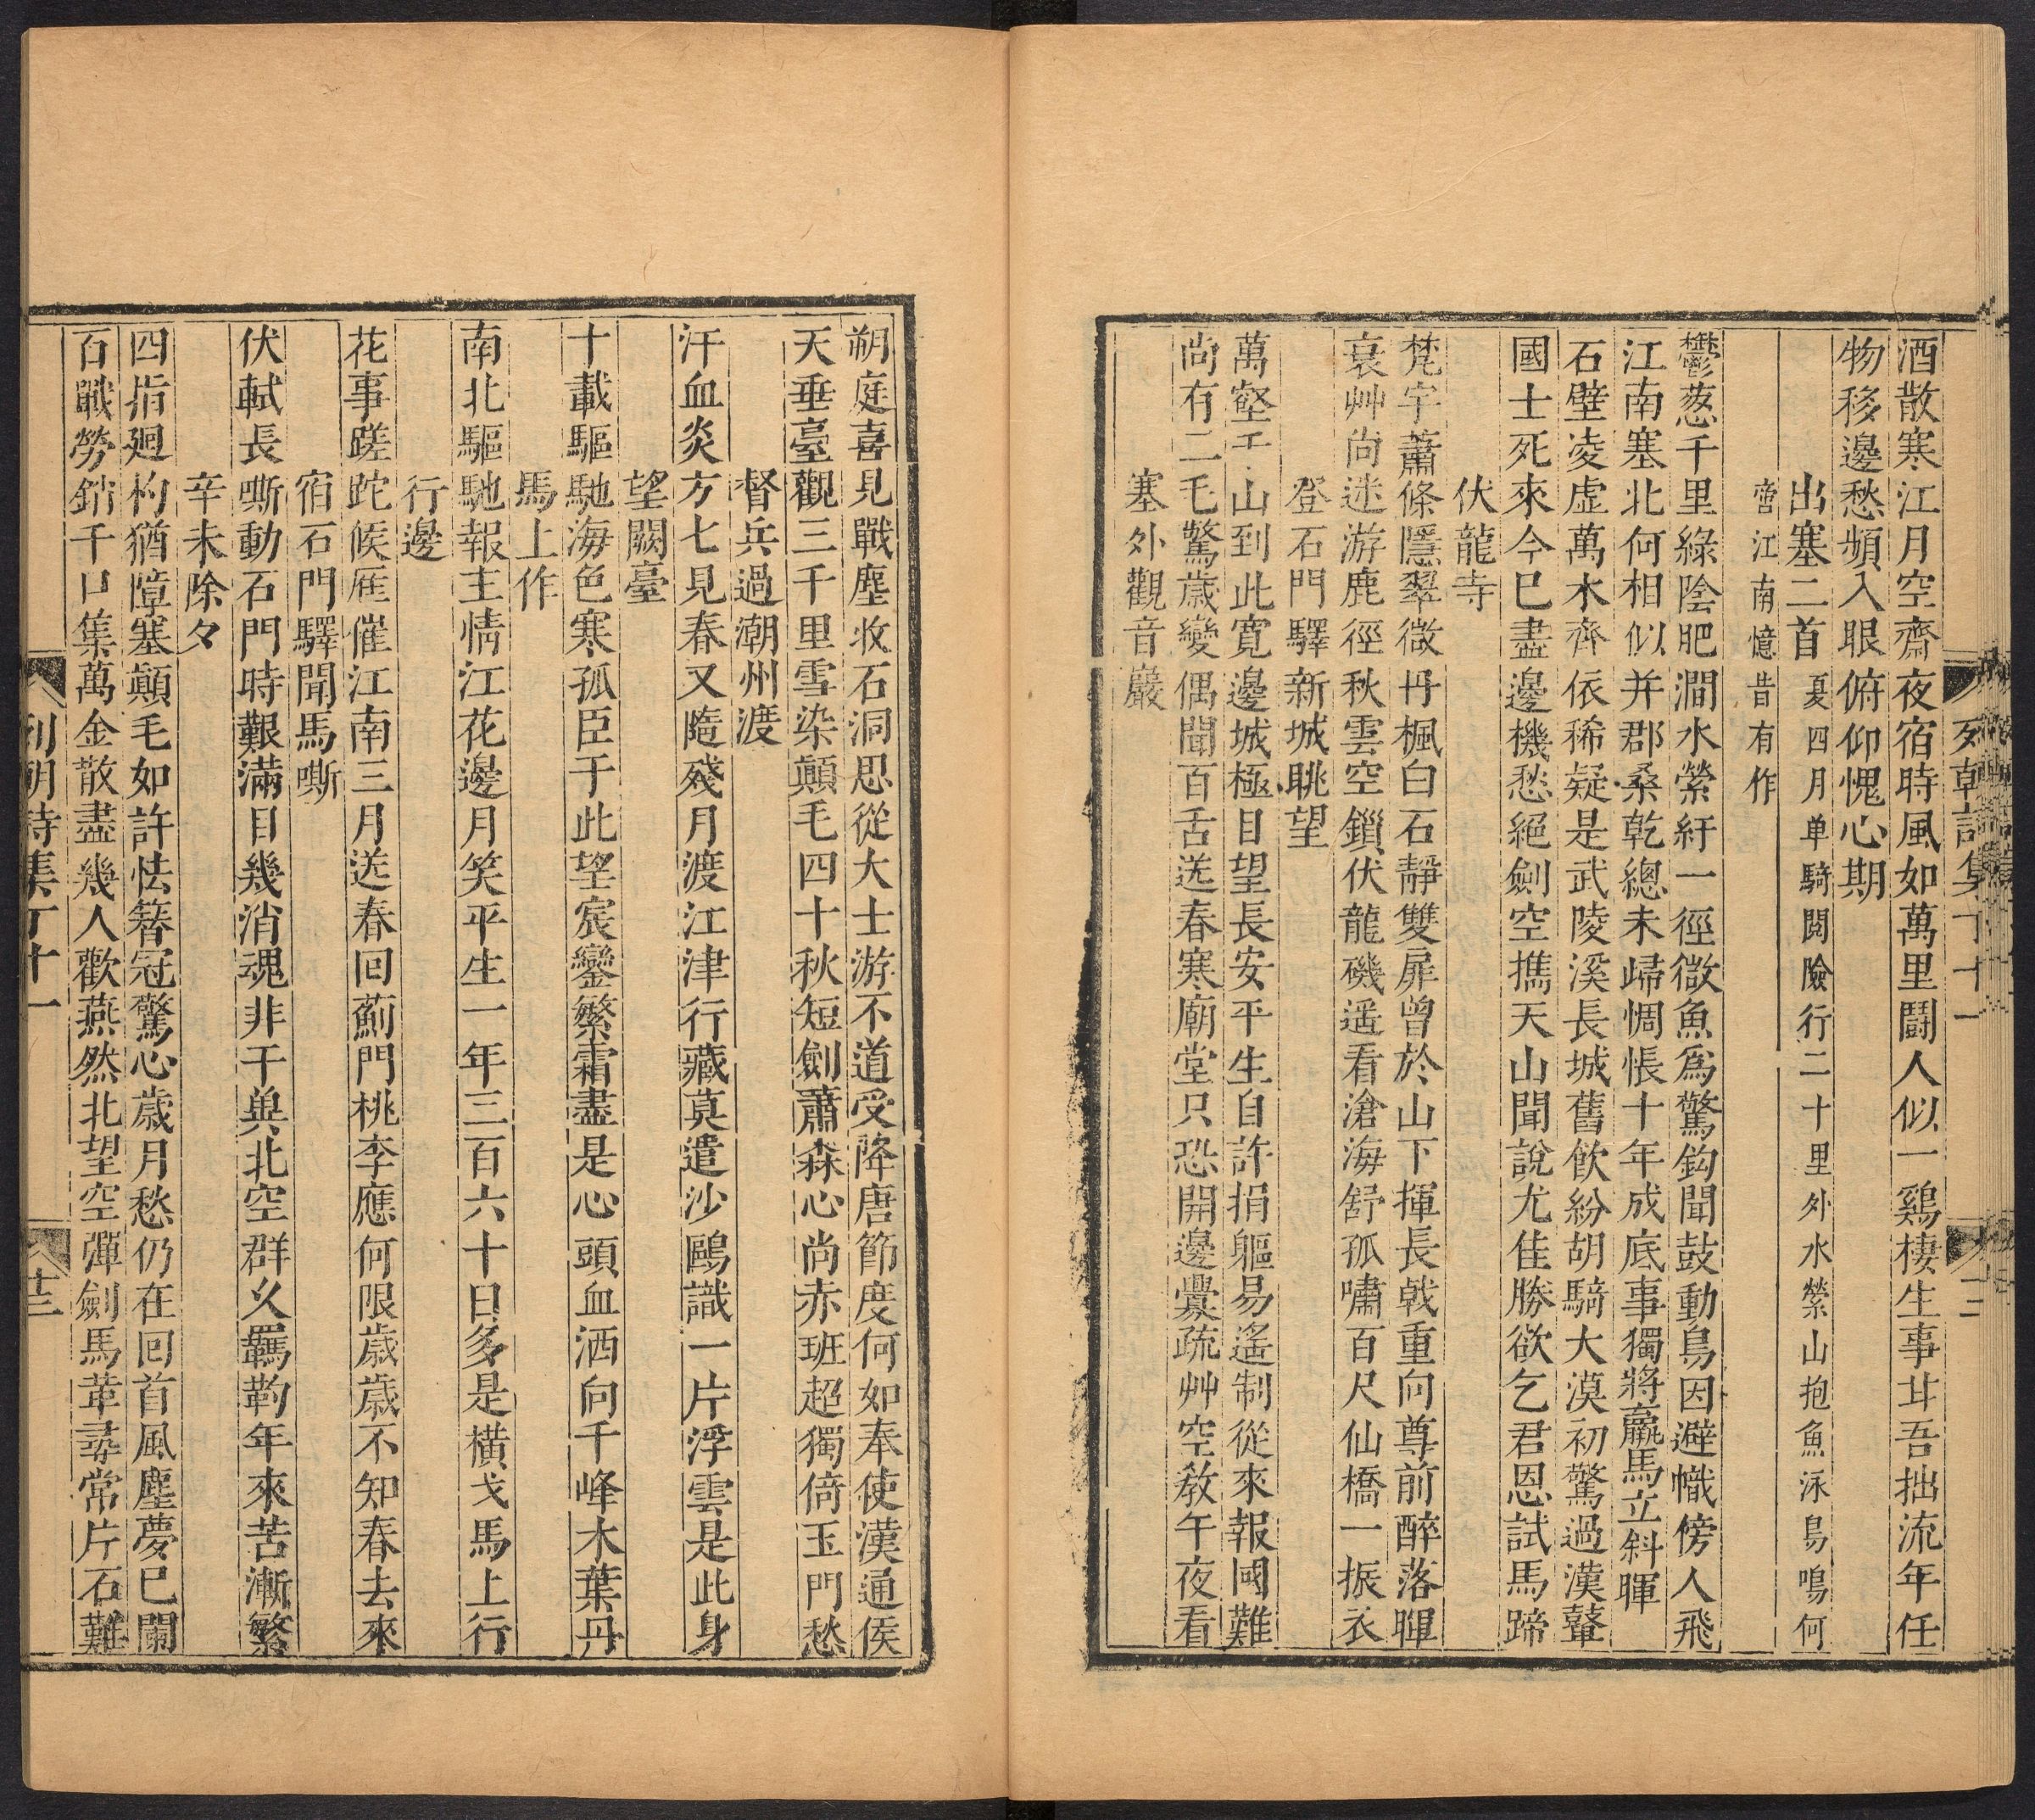 列朝詩集丁十一
二
酒散寒江月空齋夜宿時風如萬里鬪人似一鷄棲生事甘吾拙流年任
物移邊愁頻入眼俯仰愧心期
出塞二首夏四月单騎閱險行二十里外水縈山抱魚泳鳥鳴何
啻江南憶昔有作
鬱葱千里綠陰肥澗水縈紆一徑微魚爲驚鈎聞鼓動鳥因避幟傍人飛
江南塞北何相似并郡桑乾總未歸惆悵十年成底事獨將羸馬立斜暉
石壁凌虛萬木齊依稀疑是武陵溪長城舊飲紛胡騎大漠初驚過漢鼙
國士死來今已盡邊機愁絕劍空擕天山聞說尤佳勝欲乞君恩試馬蹄
伏龍寺
梵宇蕭條隱翠微丹楓白石靜雙扉曾於山下揮長戟重向尊前醉落暉
衰艸尚迷游鹿徑秋雲空鎖伏龍磯遥看滄海舒孤嘯百尺仙橋一振衣
登石門驛新城眺望
萬壑千山到此寬邊城極目望長安平生自許捐軀易遙制從來報國難
尚有二毛驚歲變偶聞百舌送春寒廟堂只恐開邊釁疏艸空教午夜看
塞外觀音巖
朔庭喜見戰塵收石洞思從大士游不道受降唐節度何如奉使漢通侯
天垂臺觀三千里雪染顛毛四十秋短劍蕭森心尚赤班超獨倚玉門愁
督兵過潮州渡
汗血炎方七見春又隨殘月渡江津行藏莫遣沙鷗識一片浮雲是此身
望闕臺
十載驅馳海色寒孤臣于此望宸鑾繁霜盡是心頭血洒向千峰木葉丹
馬上作
南北驅馳報主情江花邊月笑平生一年三百六十日多是橫戈馬上行
行邊
花事蹉跎候雁催江南三月送春回薊門桃李應何限歲歲不知春去來
宿石門驛聞馬嘶
伏軾長嘶動石門時艱滿目幾消魂非干與北空群久羈靮年來苦漸繁
辛未除夕
四指廻杓猶障塞顛毛如許怯簪冠驚心歲月愁仍在回首風塵夢已闌
百戰勞銷千日集萬金散盡幾人歡燕然北望空彈劍馬革尋常片石難
列朝詩集丁十一
廿三